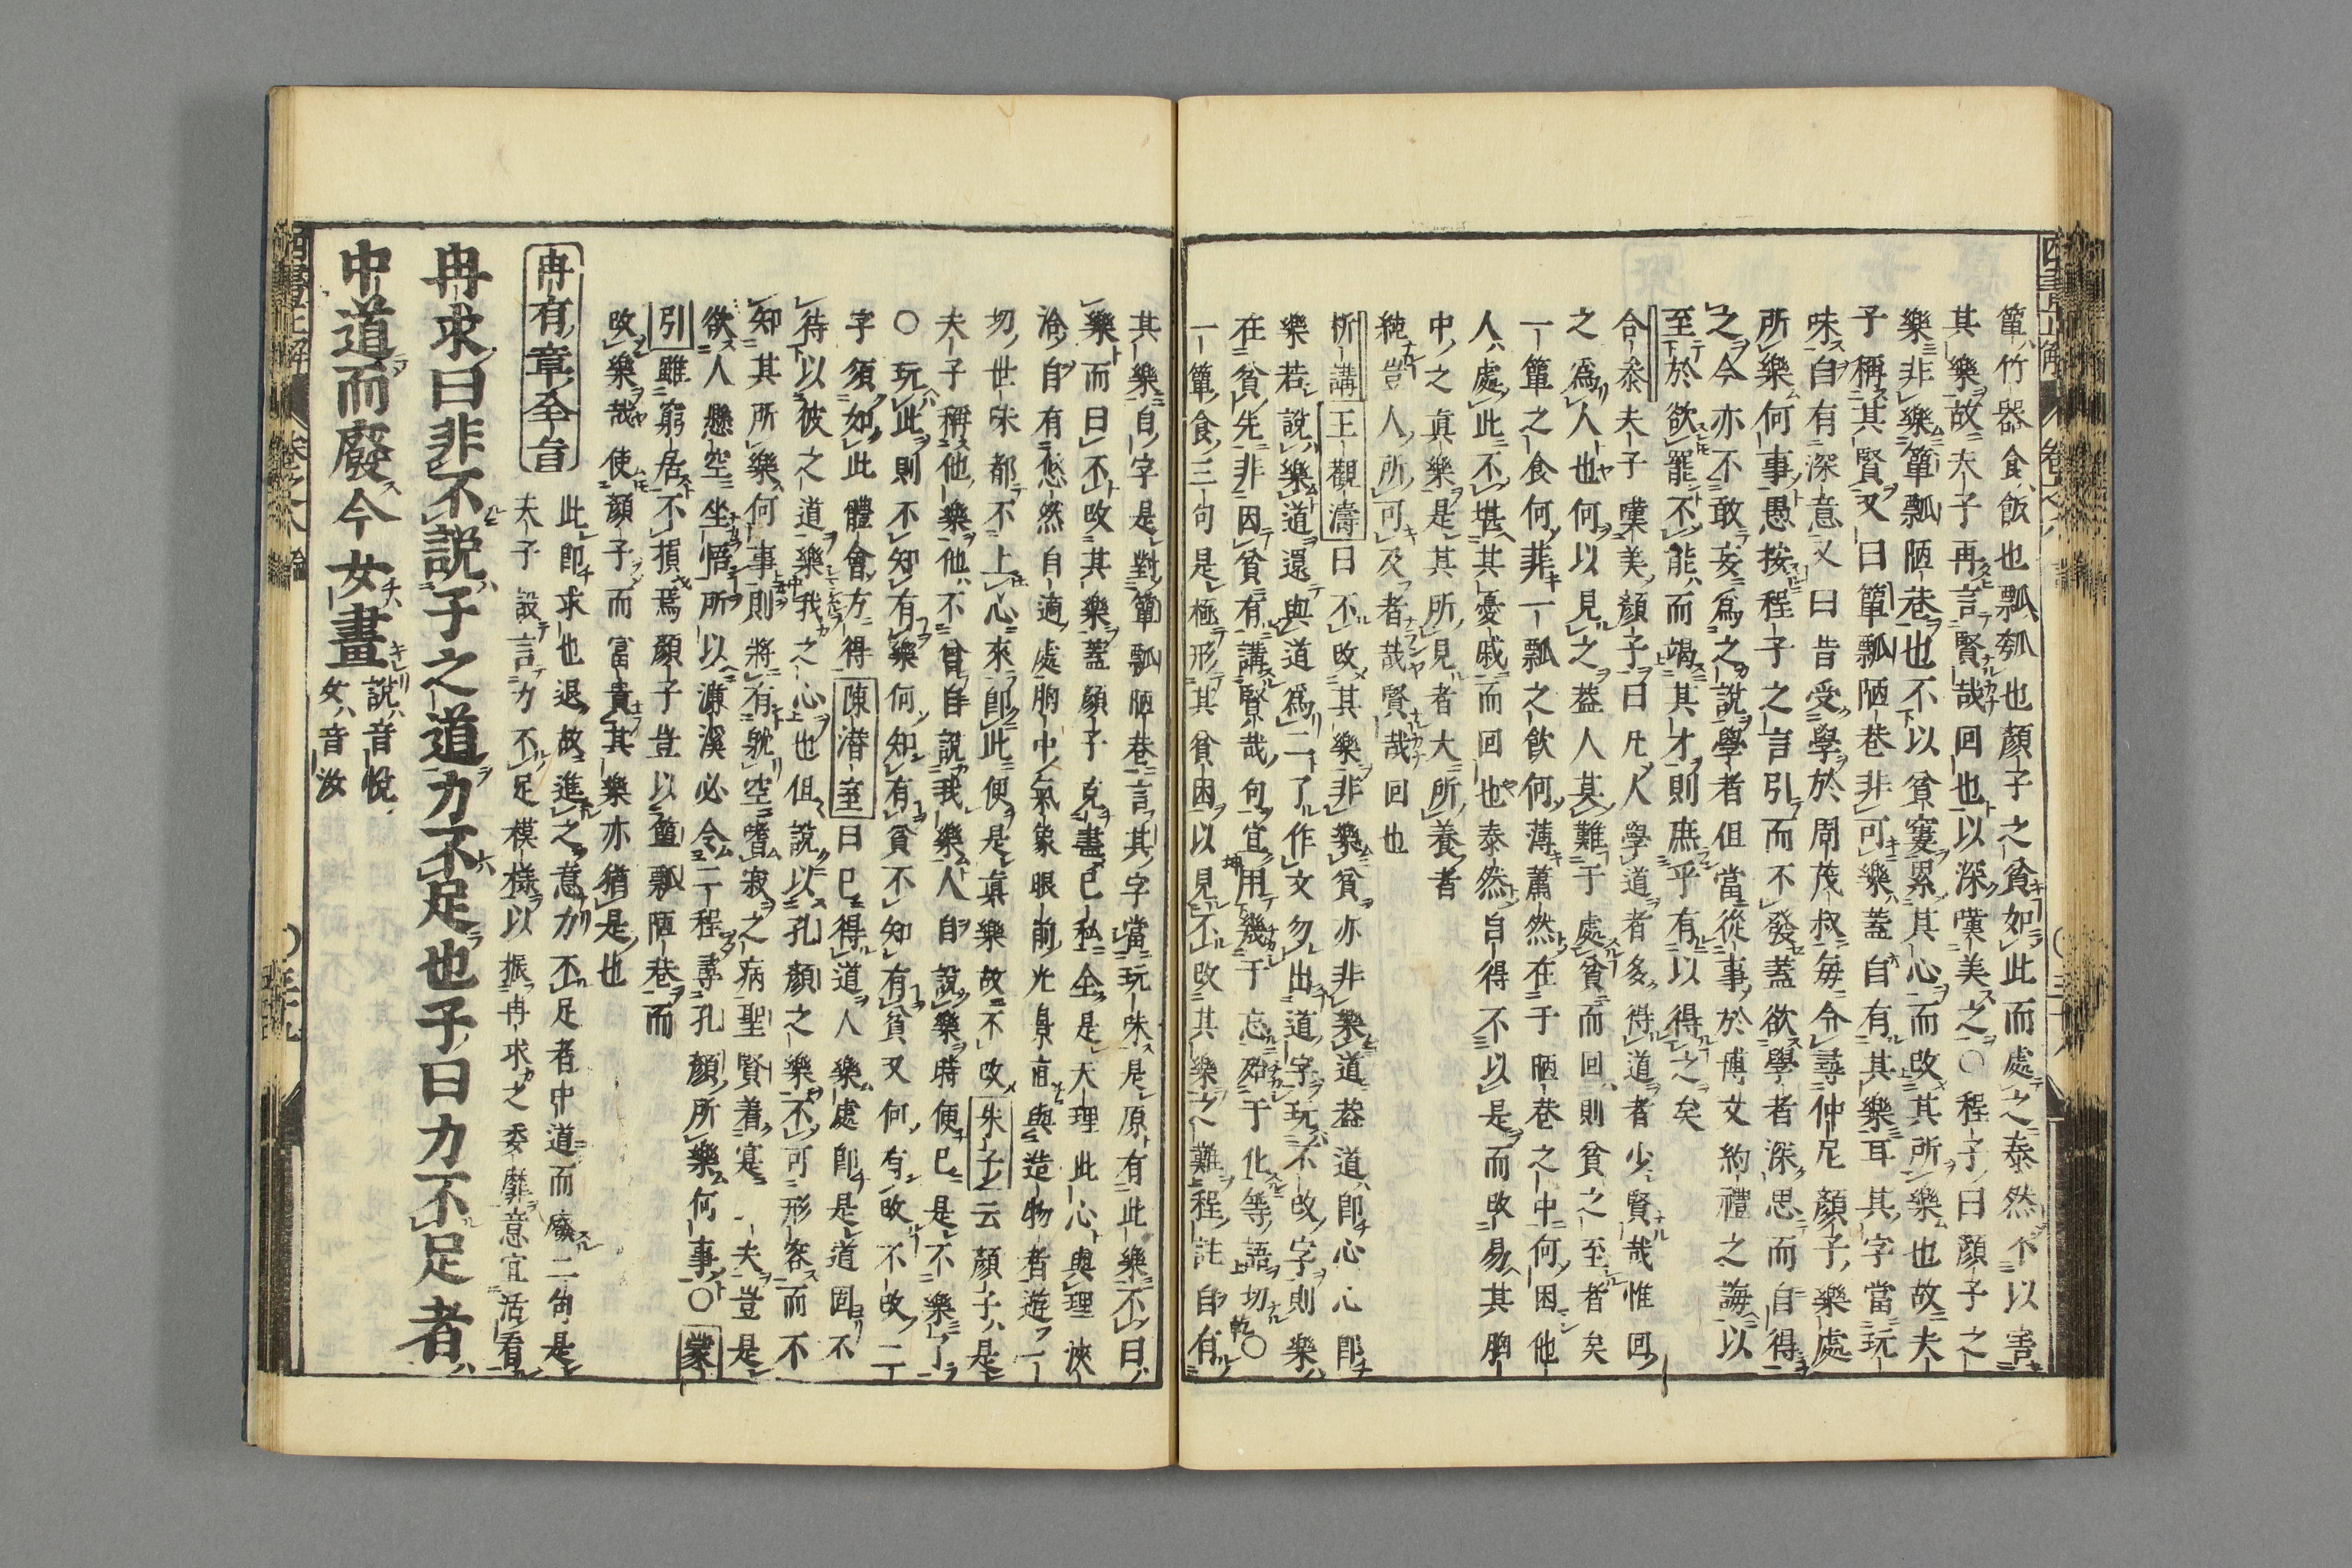 簞竹器食飯也瓢瓠也顏子之貧如此而處之泰然不以害
其樂故夫子再言賢哉回也以深嘆美之○程子曰顏子之
樂非樂簞瓢陋巷也不以貧窶累其心而改其所樂也故夫
子稱其賢又曰簞瓢陋巷非可樂蓋自有其樂耳其字當玩
味自有深意又曰昔受學於周茂叔每令尋仲尼顏子樂處
所樂何事愚按程子之言引而不發蓋欲學者深思而自得
之今亦不敢妄為之說學者但當從事於博文約禮之誨以
至於欲罷不能而竭其才則庶乎有以得之矣
合參夫子嘆美顏子曰凡人學道者多得道者少賢哉惟回
之爲人也何以見之蓋人莫難于處貧而回則貧之至者矣
一簞之食何菲一瓢之飲何薄蕭然在于陋巷之中何困他
人處此不堪其憂戚而回也泰然自得不以是而改易其胸
中之真樂是其所見者大所養者
純豈人所可及者哉賢哉回也
析講王觀濤曰不改其樂非樂貧亦非樂道蓋道即心心即
樂若說樂道還與道爲二了作文勿出道字玩不改字則樂
在貧先非因貧有講賢哉句宜用幾于忘殆于化等語切○
一簞食三句是極形其貧困以見不改其樂之難程註自有
其樂自字是對簞瓢陋巷言其字當玩味是原有此樂不曰
樂而曰不改其樂蓋顏子克盡已私全是天理此心與理浹
洽自有悠然自適處胸中氣象眼前光景直與造物者遊一
切世味都不上心來即此便是真樂故不改朱子云顏子是
夫子稱他樂他不曾自說我樂人自說樂時便已是不樂了
○玩此則不知有樂何知有貧不知有貧又何有改不改二
字須如此體會方得陳潜室曰已得道人樂處即是道固不
待以彼之道樂我之心也但說以孔顏之樂不可形容而不
知其所樂何事則將有躭空嗜寂之病聖賢着寔工夫豈是
欲人懸空坐悟所以濂溪必令二程尋孔顏所樂何事○蒙
引雖窮居不損焉顏子豈以簞瓢陋巷而
改樂哉使顏子而富貴其樂亦猶是也
冉有章全旨
此即求也退故進之意力不足者中道而廢二句是
夫子設言力不足模樣以振冉求之委靡意宜活看
冉求曰非不說子之道力不足也子曰力不足者
中道而廢今女畫
說音悅
女音汝